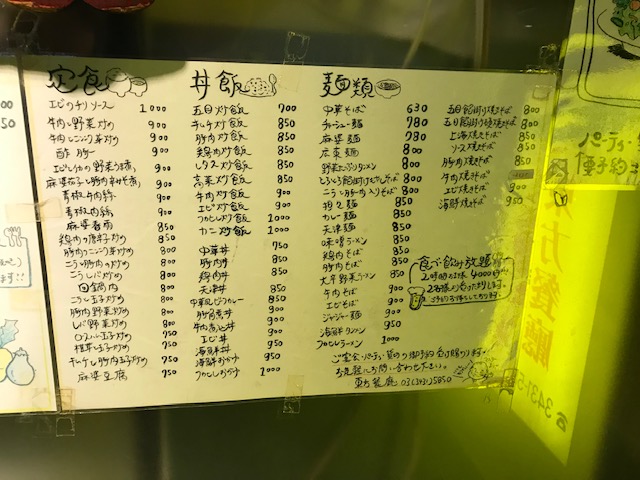 定食
エビのチリソース 1000
牛肉と野菜炒め 900
牛肉とニンニク芽炒め 900
酢豚 900
エビとイカの野菜うま煮 900
麻婆茄子と豚肉辛みそ煮 900
青椒牛肉絲 900
青椒肉絲 900
麻婆春雨 850
鶏肉の唐辛子炒め 850
豚肉とニンニク芽炒め 800
ニラと豚肉炒め 800
ニラレバ炒め 800
回鍋肉 800
ニラ玉子炒め 800
豚肉野菜炒め 800
レバ野菜炒め 800
750
750
豚肉玉子炒め 750
麻婆豆腐 750
丼飯
五目炒飯 700
キムチ炒飯 800
豚肉炒飯 800
鶏肉炒飯 800
レタス炒飯 850
高菜炒飯 850
牛肉炒飯 900
エビ炒飯 900
フカヒレ炒飯 1000
カニ炒飯 1000
中華丼 750
豚肉丼 850
鶏肉丼 850
天津丼 850
中華風ビーフカレー 850
豚角煮丼 900
牛肉煮込丼 900
エビ丼 950
海鮮丼 950
海鮮おかゆ 950
フカヒレおかゆ 1000
麺類
中華そば 630
チャーシュー麺 780
麻婆麺 780
広東麺 800
野菜たっぷりタンメン 800
800
ニラと豚肉入りそば 800
担々麺 850
カレー麺 850
天津麺 850
味噌ラーメン 850
鶏肉そば 850
豚肉そば 850
大辛野菜ラーメン 850
牛肉そば 900
エビそば 900
ジャージャー麺 900
海鮮ラーメン 950
フカヒレラーメン 1000
五目餡掛け焼きそば 800
五目餡掛け焼そば 800
上海焼きそば 850
ソース焼きそば 850
豚肉焼きそば 850
牛肉焼きそば
エビ焼きそば 900
海鮮焼きそば 950
食べ飲み放題
2時間 4000
2名様より承っております。
ご宴会・パーティ等のご予約受け賜ります。
お気軽にお問い合わせ下さい。
東方餐廳 03(3431)5850
パーティ
東方餐廳
☎3431-5